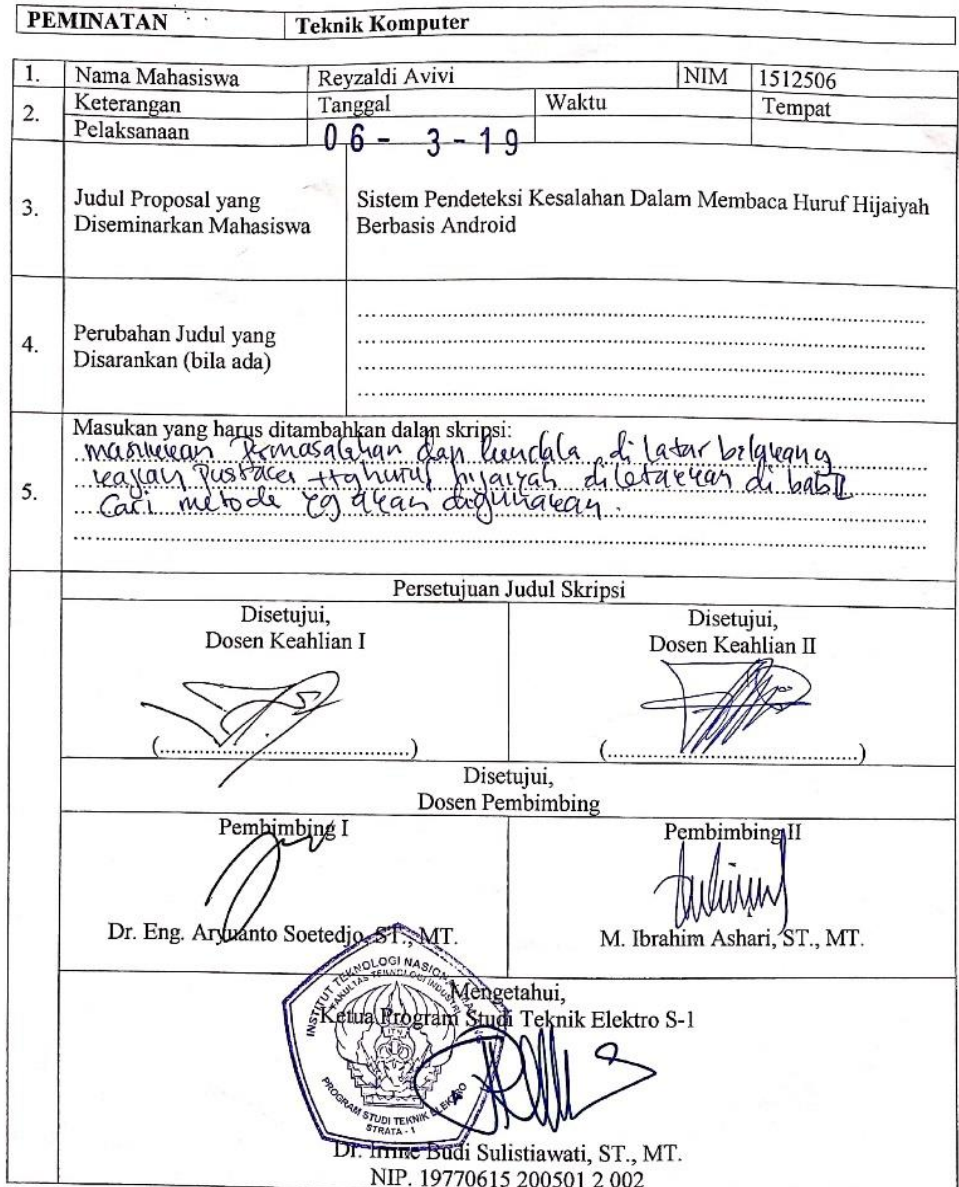 PEMINATAN Teknik Komputer
1. Nama Mahasiswa Reyzaldi Avivi NIM 1512506
2. Keterangan Pelaksanaan Tanggal Waktu Tempat
06 - 3 - 19
3. Judul Proposal yang Diseminarkan Mahasiswa
Sistem Pendeteksi Kesalahan Dalam Membaca Huruf Hijaiyah
Berbasis Android
4. Perubahan Judul yang
Disarankan (bila ada)
5. Masukan yang harus ditambahkan dalan skripsi:
masukkan Permasalahan dan kendala di latar belakang
kajian Pustaka ttg huruf hijaiyah diletakkan di bab II
Cari metode yg akan digunakan.
Persetujuan Judul Skripsi
Disetujui,
Dosen Keahlian I
Disetujui,
Dosen Keahlian II
(..........)
(..........)
Disetujui,
Dosen Pembimbing
Pembimbing I
Pembimbing II
Dr. Eng. Aryuanto Soetedjo, ST., MT.
M. Ibrahim Ashari, ST., MT.
INSTITUT TEKNOLOGI NASIONAL
FAKULTAS TEKNOLOGI INDUSTRI
PROGRAM STUDI TEKNIK ELEKTRO
STRATA - 1
Mengetahui,
Ketua Program Studi Teknik Elektro S-1
Dr. Irrine Budi Sulistiawati, ST., MT.
NIP. 19770615 200501 2 002